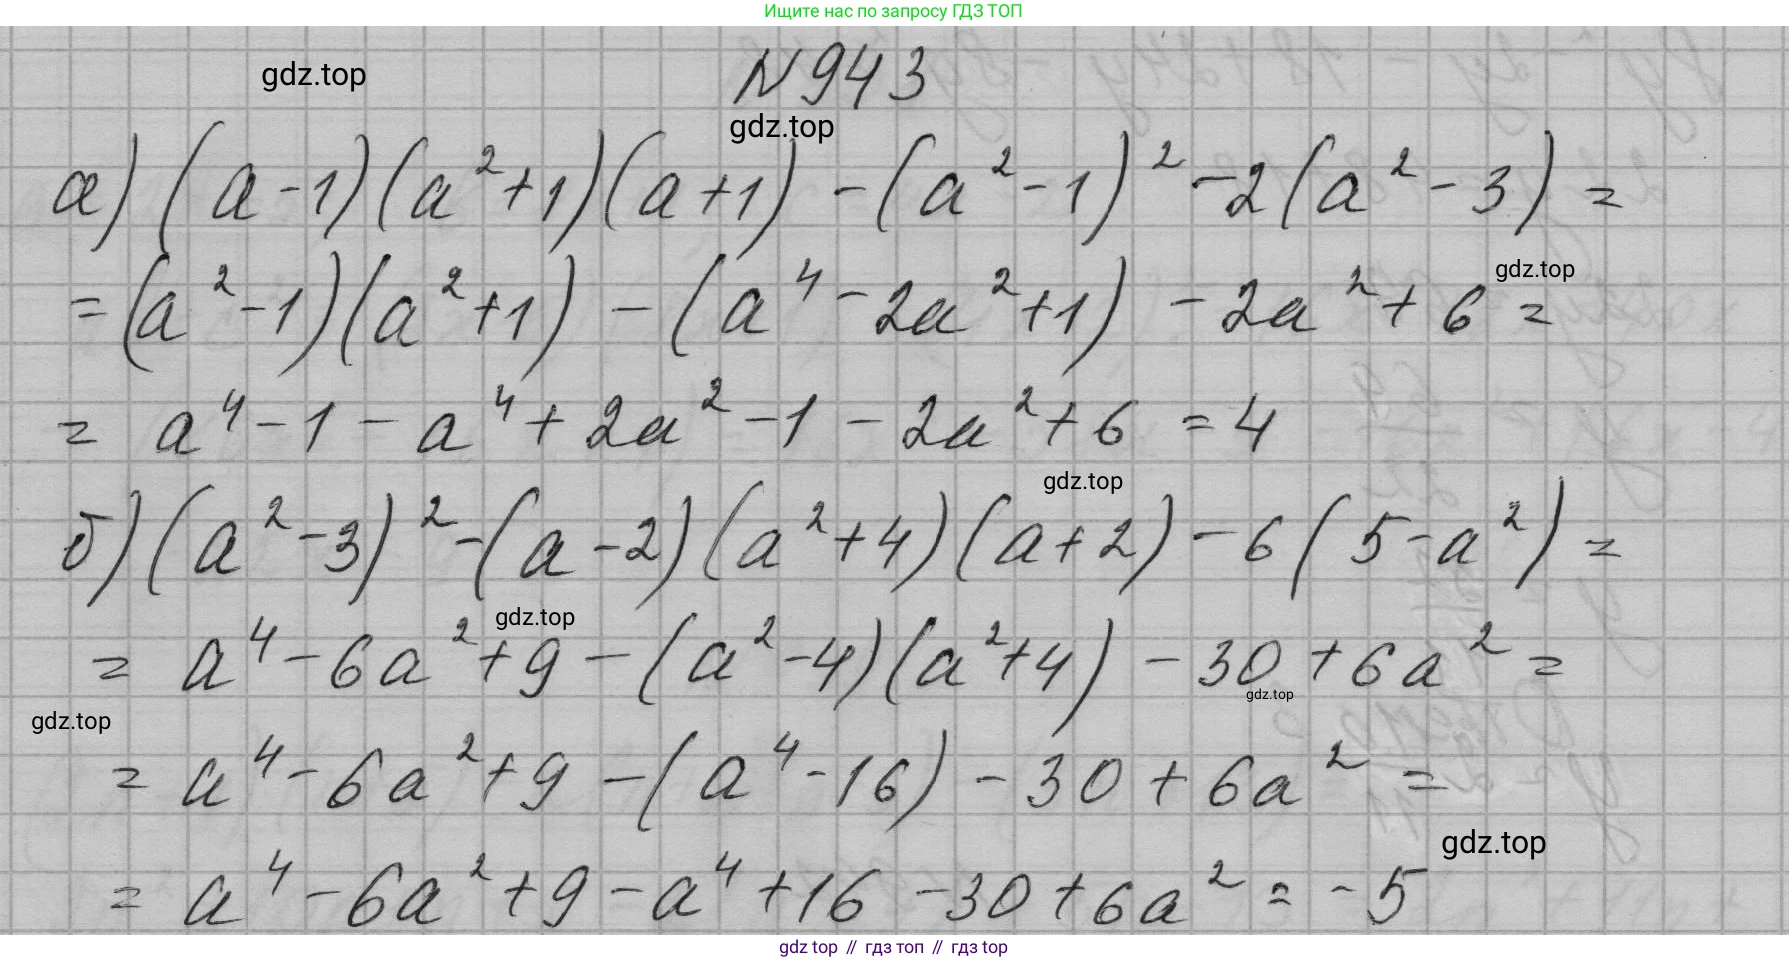 Ищите нас по запросу ГДЗ ТОП
gdz.top
N 943
gdz.top
а) (a-1)(a²+1)(a+1) - (a²-1)² - 2(a²-3) =
gdz.top
= (a²-1)(a²+1) - (a⁴-2a²+1) - 2a²+6 =
= a⁴-1-a⁴+2a²-1-2a²+6 = 4
gdz.top
б) (a²-3)² - (a-2)(a²+4)(a+2) - 6(5-a²) =
gdz.top
= a⁴-6a²+9-(a²-4)(a²+4)-30+6a² =
gdz.top
gdz.top
= a⁴-6a²+9-(a⁴-16)-30+6a² =
gdz.top
= a⁴-6a²+9-a⁴+16-30+6a² = -5
gdz top // гдз топ // гдз top